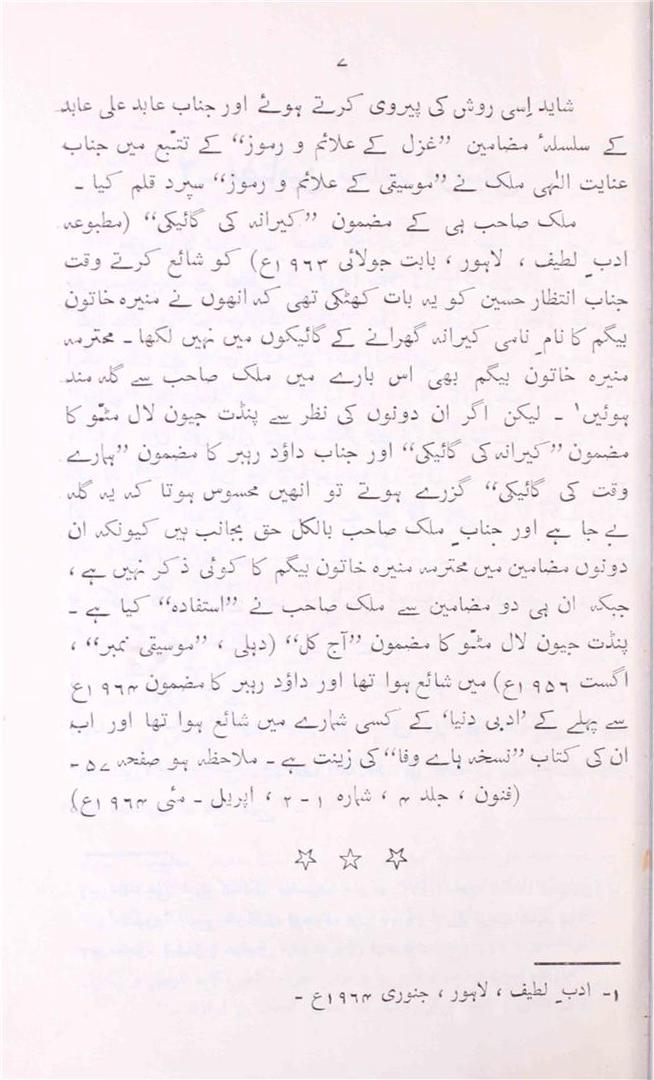 ۷
شاید اِسی روش کی پیروی کرتے ہوئے اور جناب عابد علی عابد
کے سلسلہٴ مضامین ”غزل کے علائم و رموز“ کے تتبّع میں جناب
عنایت الٰہی ملک نے ”موسیقی کے علائم و رموز“ سپرد قلم کیا ۔
ملک صاحب ہی کے مضمون ”کیرانہ کی گائیکی“ (مطبوعہ
ادبِ لطیف ، لاہور ، بابت جولائی ۱۹۶۳ع) کو شائع کرتے وقت
جناب انتظار حسین کو یہ بات کھٹکی تھی کہ انھوں نے منیرہ خاتون
بیگم کا نامِ نامی کیرانہ گھرانے کے گائیکوں میں نہیں لکھا ۔ محترمہ
منیرہ خاتون بیگم بھی اس بارے میں ملک صاحب سے گلہ مند
ہوئیں۱ ۔ لیکن اگر ان دونوں کی نظر سے پنڈت جیون لال مٹّو کا
مضمون ”کیرانہ کی گائیکی“ اور جناب داؤد رہبر کا مضمون ”ہمارے
وقت کی گائیکی“ گزرے ہوتے تو انھیں محسوس ہوتا کہ یہ گلہ
بے جا ہے اور جنابِ ملک صاحب بالکل حق بجانب ہیں کیونکہ ان
دونوں مضامین میں محترمہ منیرہ خاتون بیگم کا کوئی ذکر نہیں ہے ،
جبکہ ان ہی دو مضامین سے ملک صاحب نے ”استفادہ“ کیا ہے ۔
پنڈت جیون لال مٹّو کا مضمون ”آج کل“ (دہلی ، ”موسیقی نمبر“ ،
اگست ۱۹۵۶ع) میں شائع ہوا تھا اور داؤد رہبر کا مضمون ۱۹۶۴ع
سے پہلے کے ’ادبی دنیا‘ کے کسی شمارے میں شائع ہوا تھا اور اب
ان کی کتاب ”نسخہ ہائے وفا“ کی زینت ہے ۔ ملاحظہ ہو صفحہ ۵۷ ۔
(فنون ، جلد ۴ ، شمارہ ۱ - ۲ ، اپریل - مئی ۱۹۶۴ع)
☆ ☆ ☆
۱- ادبِ لطیف ، لاہور ، جنوری ۱۹۶۴ع ۔